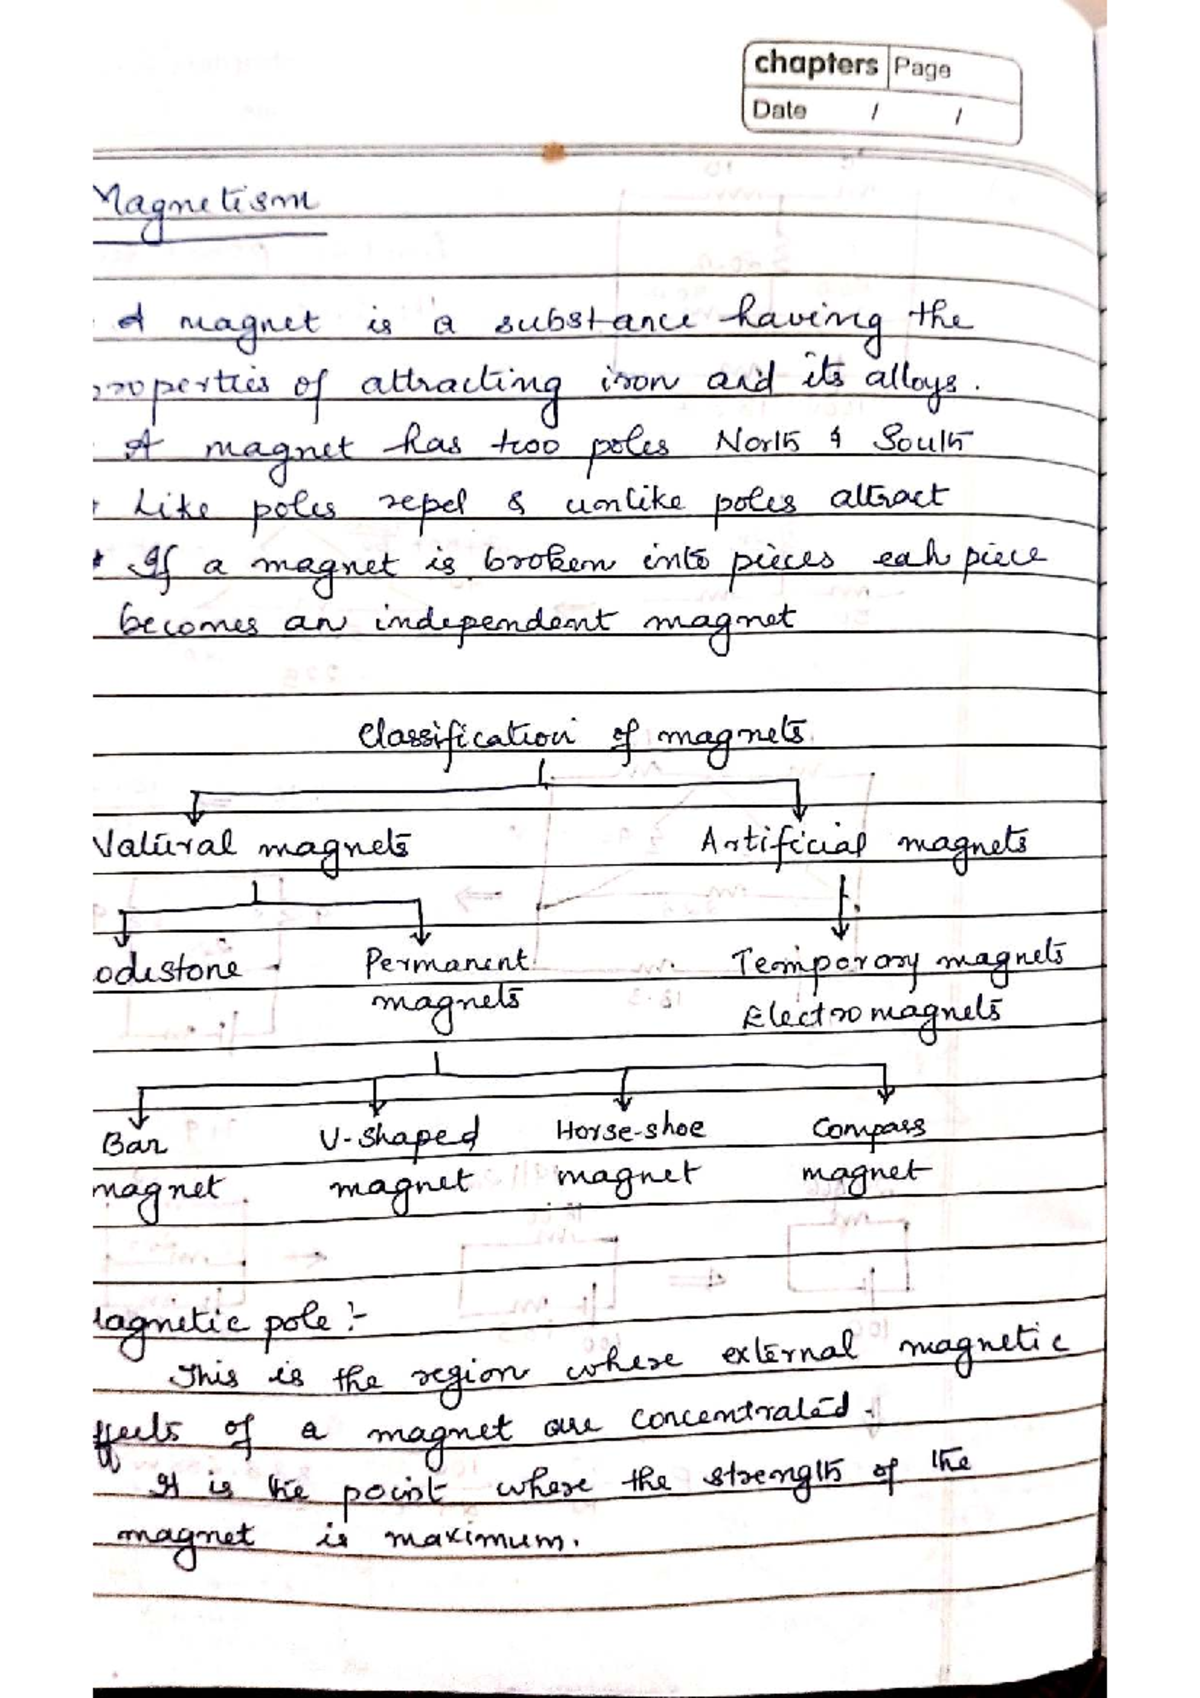 chapters Page
Date / /
Magnetism
A magnet is a substance having the
properties of attracting iron and its alloys.
A magnet has two poles North & South
* Like poles repel & unlike poles attract
* If a magnet is broken into pieces eah piece
becomes an independent magnet
Classification of magnets
Natural magnets Artificial magnets
odestone Permanent Temporary magnets
magnets Electromagnets
Bar U-shaped Horse-shoe Compass
magnet magnet magnet magnet
Magnetic pole :-
This is the region where external magnetic
ffects of a magnet are concentrated.
It is the point where the strength of the
magnet is maximum.